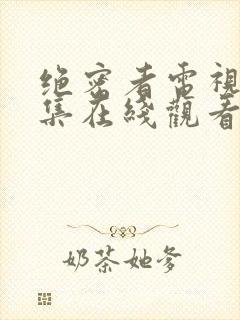 绝密者電視
集在綫觀看
奶茶她爹